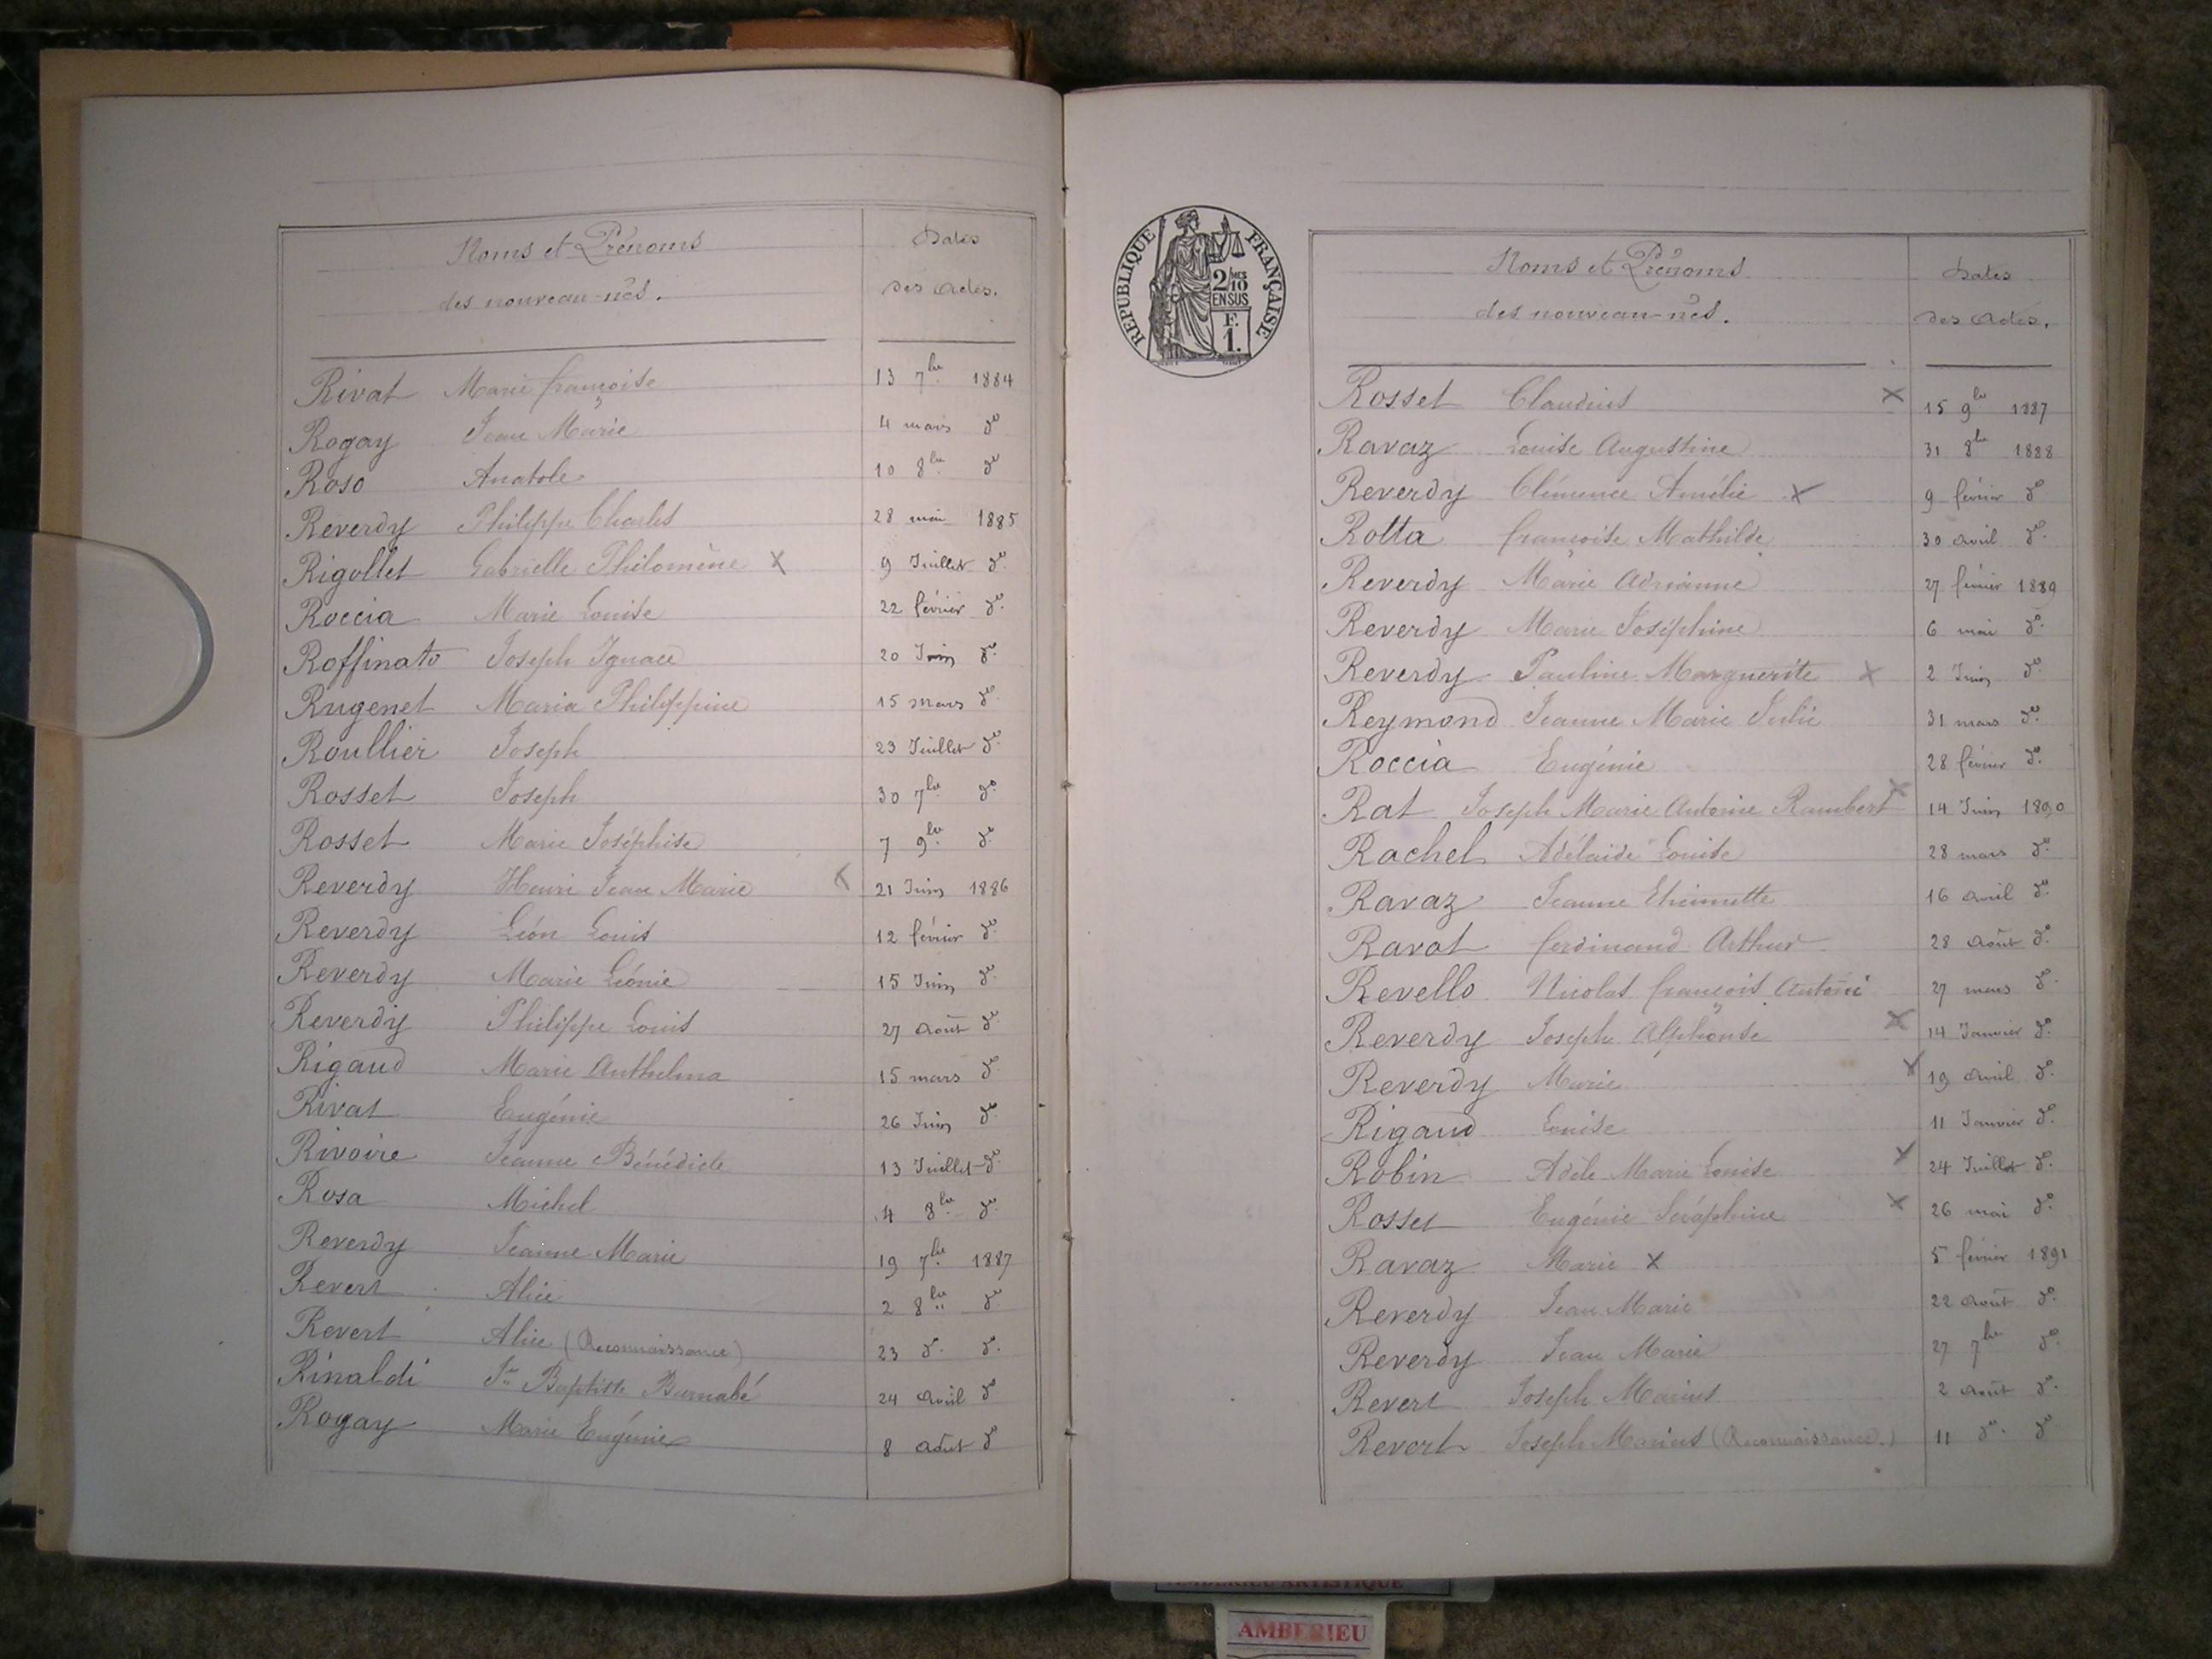 Noms et Prénoms
des nouveau-nés.
Dates
des actes.
Rivat Marie françoise 13 7bre 1884
Rogay Jean Marie 4 mars do
Roso Anatole 10 8bre do
Reverdy Philippe Charles 28 mai 1885
Rigollet Gabrielle Philomène X 9 Juillet do
Roccia Marie Louise 22 février do
Roffinato Joseph Ignace 20 Juin do
Rugenet Maria Philippine 15 mars do
Roullier Joseph 23 Juillet do
Rosset Joseph 30 7bre do
Rosset Marie Joséphise 7 9bre do
Reverdy Henri Jean Marie X 21 Juin 1886
Reverdy Léon Louis 12 février do
Reverdy Marie Léonie 15 Juin do
Reverdy Philippe Louis 27 août do
Rigaud Marie Anthelma 15 mars do
Rivat Eugénie 26 Juin do
Rivoire Jeanne Bénédicte 13 Juillet do
Rosa Michel 4 8bre do
Reverdy Jeanne Marie 19 7bre 1887
Revert Alice 2 8bre do
Revert Alice (Reconnaissance) 23 do do
Rinaldi Jn Baptiste Barnabé 24 avril do
Rogay Marie Eugénie 8 août do
REPUBLIQUE FRANÇAISE
2/10 MES
EN SUS
F.
1.
Noms et Prénoms
des nouveau-nés.
Dates
des actes.
Rosset Claudius X 15 9bre 1887
Ravaz Louise Augustine 31 8bre 1888
Reverdy Clémence Amélie X 9 février do
Rotta françoise Mathilde 30 avril do
Reverdy Marie Adrianne 27 février 1889
Reverdy Marie Joséphine 6 mai do
Reverdy Pauline Marguerite X 2 Juin do
Reymond Jeanne Marie Julie 31 mars do
Roccia Eugénie 28 février do
Rat Joseph Marie Antoine Rambert X 14 Juin 1890
Rachel Adélaïde Louise 28 mars do
Ravaz Jeanne Etiennette 16 avril do
Ravot ferdinand Arthur 28 août do
Revello Nicolas françois Antoine 27 mars do
Reverdy Joseph Alphonse X 14 Janvier do
Reverdy Marie X 19 avril do
Rigaud Louise 11 Janvier do
Robin Adèle Marie Louise X 24 Juillet do
Rosset Eugénie Séraphine X 26 mai do
Ravaz Marie X 5 février 1891
Reverdy Jean Marie 22 août do
Reverdy Jean Marie 27 7bre do
Revert Joseph Marius 2 août do
Revert Joseph Marius (Reconnaissance.) 11 do do
AMBERIEU ARTISTIQUE
AMBERIEU